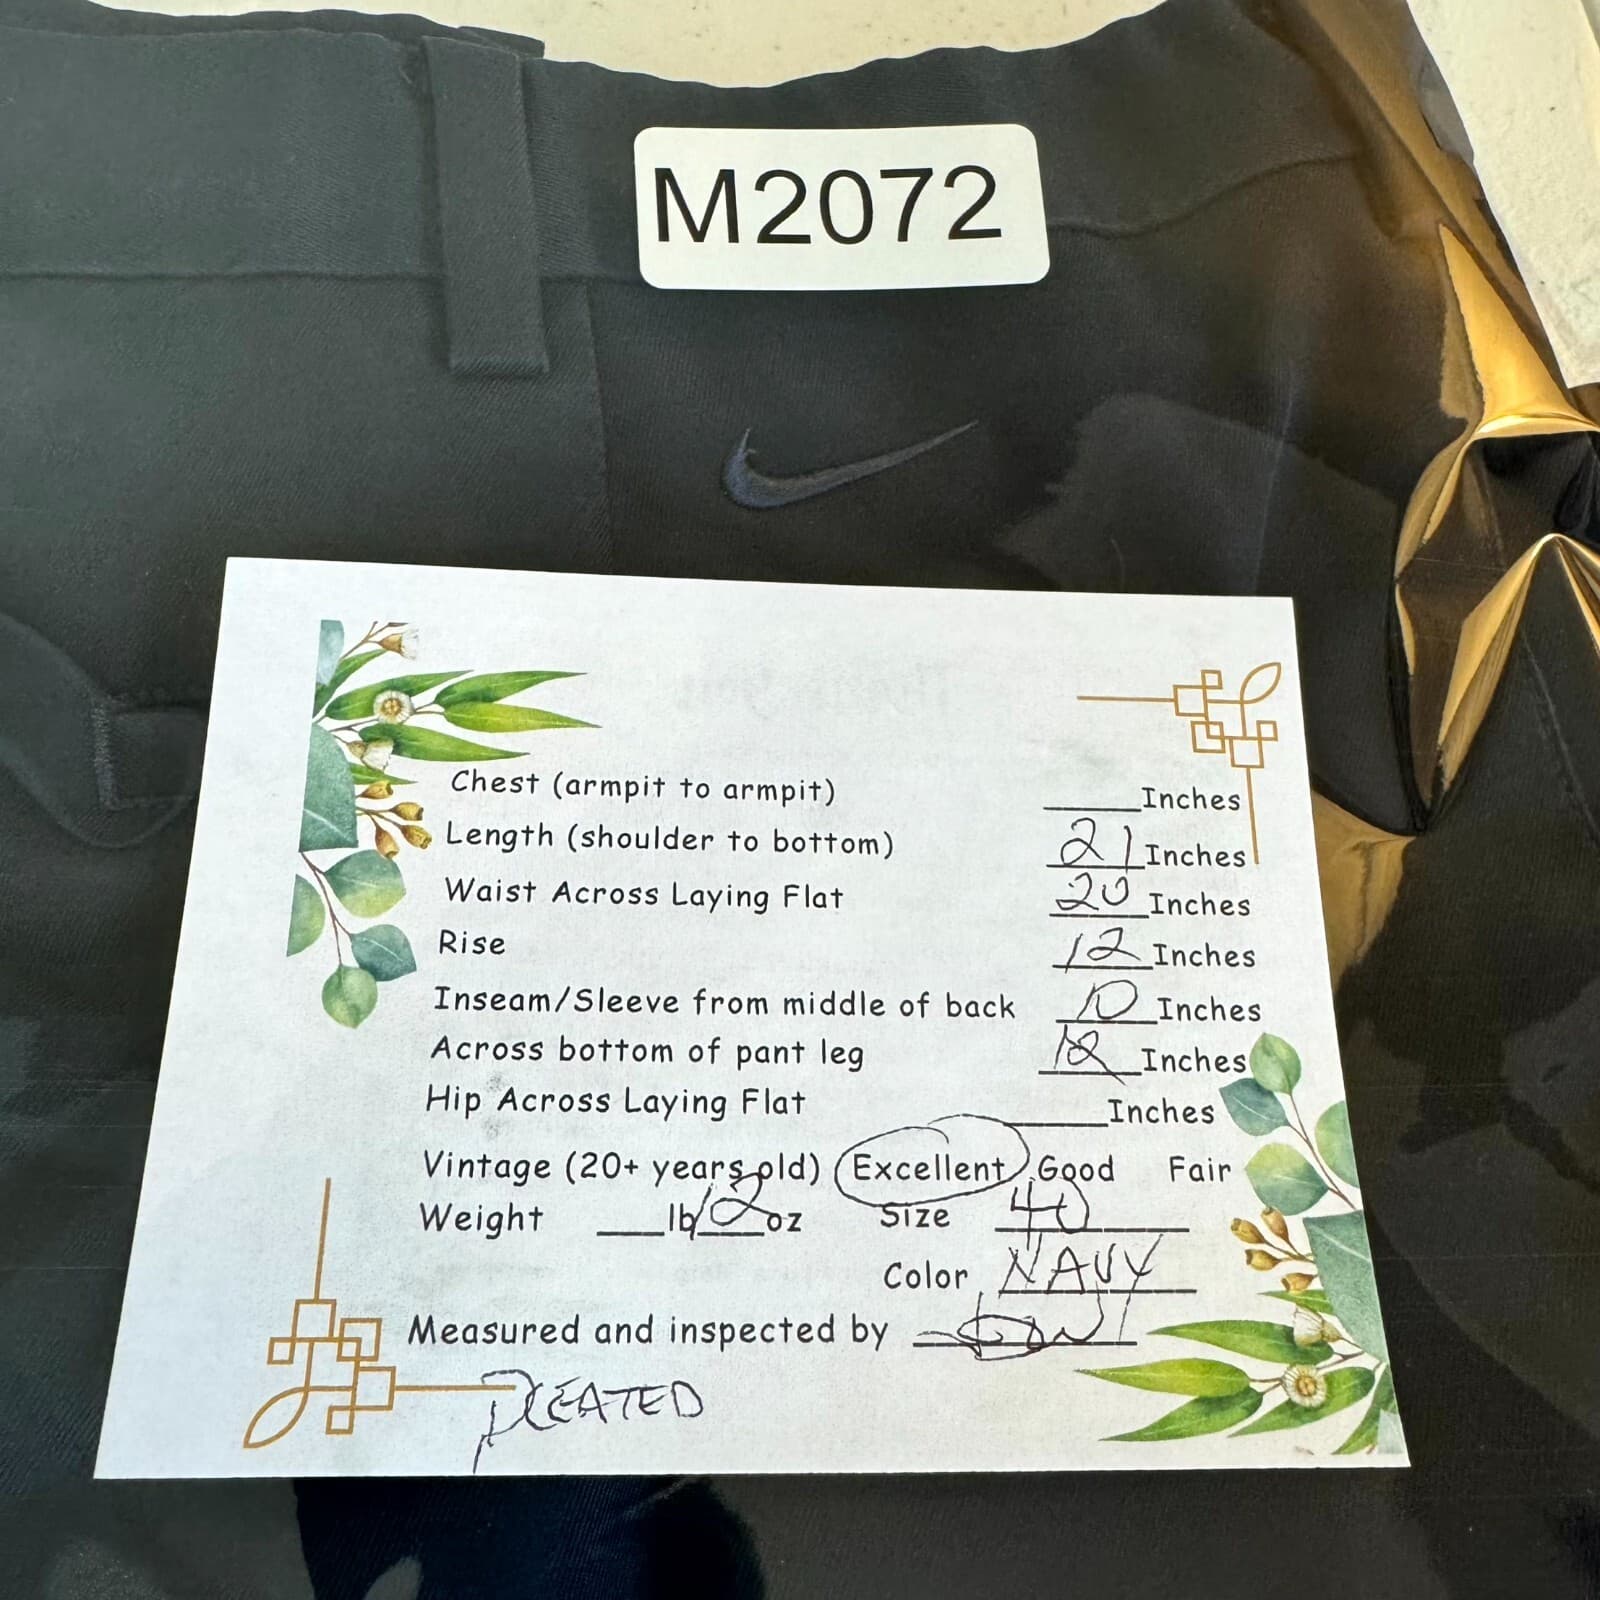 M2072
Chest (armpit to armpit) _____Inches
Length (shoulder to bottom) 21 Inches
Waist Across Laying Flat 20 Inches
Rise 12 Inches
Inseam/Sleeve from middle of back 10 Inches
Across bottom of pant leg 12 Inches
Hip Across Laying Flat _____Inches
Vintage (20+ years old) Excellent Good Fair
Weight ____lb 12 oz Size 40
Color NAVY
Measured and inspected by
PLEATED